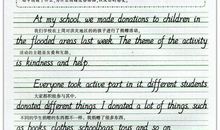 At my school, we made donations to children in
我们学校在上周对洪灾地区的孩子进行了捐赠活动。
the flooded areas last week. The theme of the activity
活动的主题是友善和互助。
is kindness and help.
Everyone took active part in it. different students
大家都积极参与其中。
donated different things. I donated a lot of things, such
不同的学生捐赠的东西都不一样。我捐了很多东西,
as books, clothes, schoolbags, toys and so on.